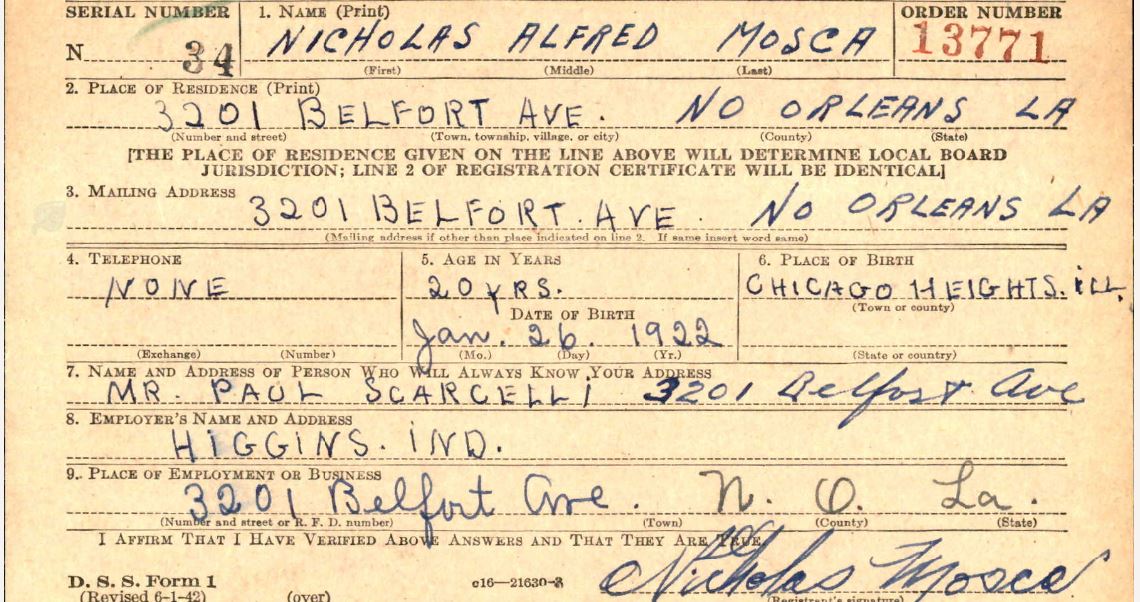 SERIAL NUMBER 1. NAME (Print) ORDER NUMBER
N 34 NICHOLAS ALFRED MOSCA 13771
(First) (Middle) (Last)
2. PLACE OF RESIDENCE (Print)
3201 BELFORT AVE. NO ORLEANS LA
(Number and street) (Town, township, village, or city) (County) (State)
[THE PLACE OF RESIDENCE GIVEN ON THE LINE ABOVE WILL DETERMINE LOCAL BOARD
JURISDICTION; LINE 2 OF REGISTRATION CERTIFICATE WILL BE IDENTICAL]
3. MAILING ADDRESS
3201 BELFORT. AVE. NO ORLEANS LA
(Mailing address if other than place indicated on line 2. If same insert word same)
4. TELEPHONE 5. AGE IN YEARS 6. PLACE OF BIRTH
NONE 20 YRS. CHICAGO HEIGHTS. ILL.
DATE OF BIRTH (Town or county)
Jan. 26. 1922
(Exchange) (Number) (Mo.) (Day) (Yr.) (State or country)
7. NAME AND ADDRESS OF PERSON WHO WILL ALWAYS KNOW YOUR ADDRESS
MR. PAUL SCARCELLI 3201 Belfort Ave
8. EMPLOYER'S NAME AND ADDRESS
HIGGINS. IND.
9. PLACE OF EMPLOYMENT OR BUSINESS
3201 Belfort Ave. N. O. La.
(Number and street or R. F. D. number) (Town) (County) (State)
I AFFIRM THAT I HAVE VERIFIED ABOVE ANSWERS AND THAT THEY ARE TRUE.
Nicholas Mosca
D. S. S. Form 1 c16—21630-2
(Revised 6-1-42) (over) (Registrant's signature)